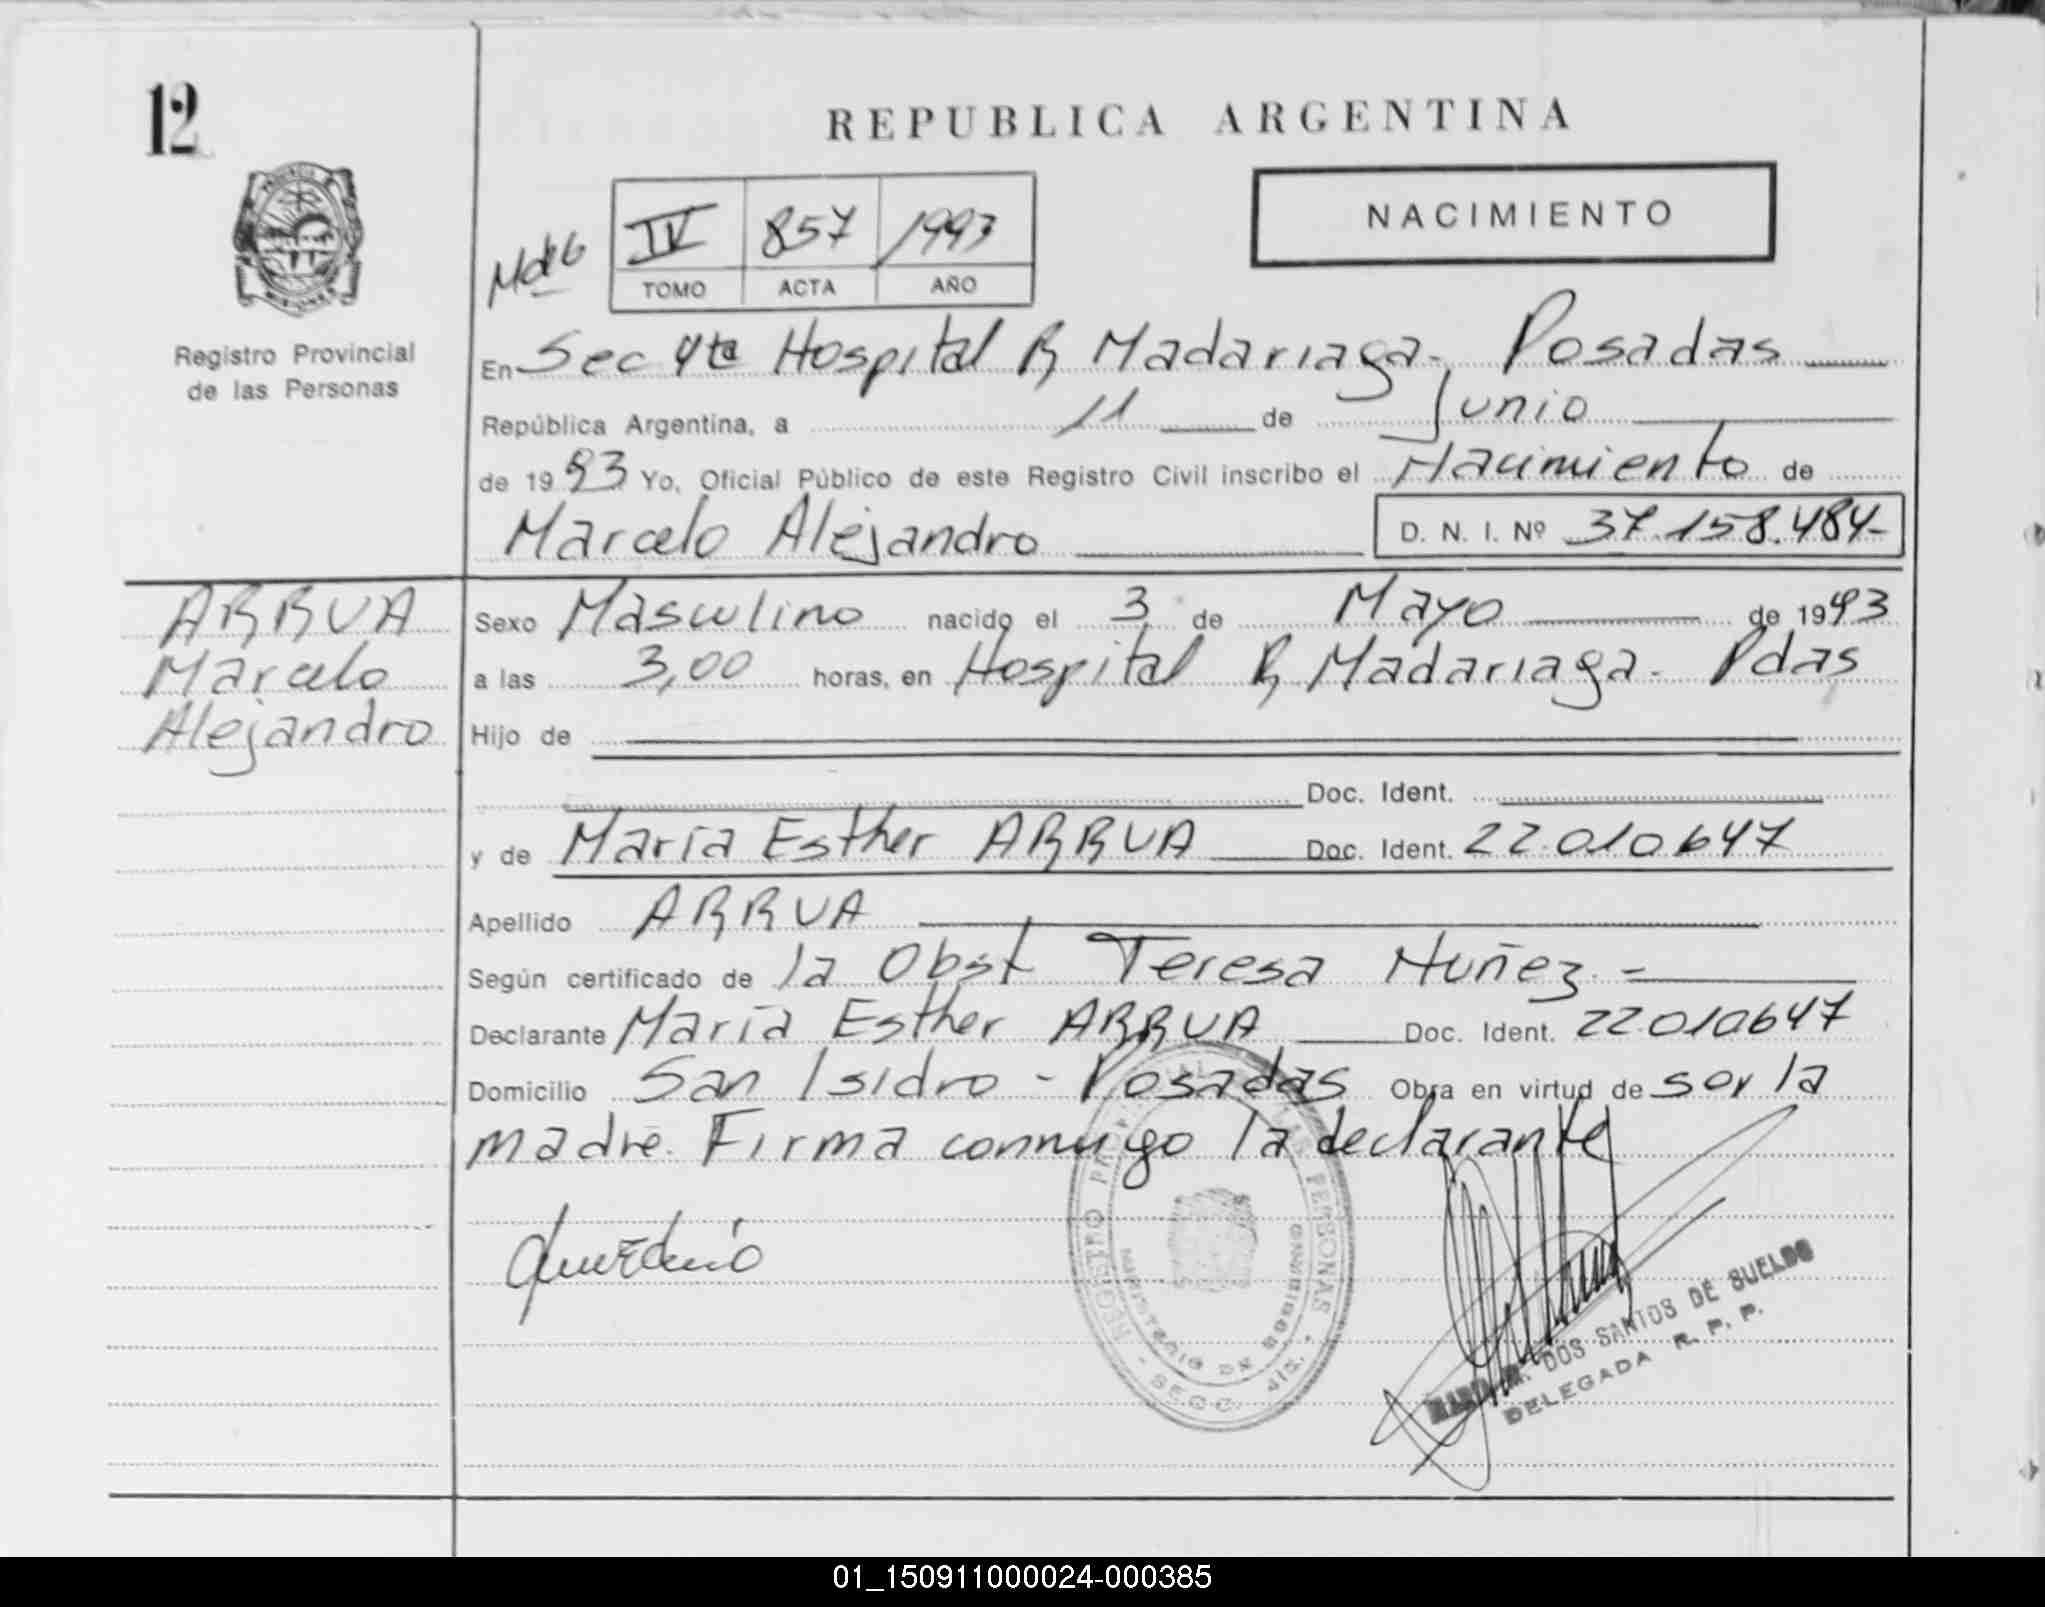 12
REPUBLICA ARGENTINA
NACIMIENTO
IV 857 1993
TOMO ACTA AÑO
Registro Provincial
de las Personas
En Sec 4ta Hospital R Madariaga - Posadas
República Argentina, a 11 de Junio
de 1993 Yo, Oficial Público de este Registro Civil inscribo el Nacimiento de
Marcelo Alejandro D. N. I. Nº 37.158.484-
ARRUA
Marcelo
Alejandro
Sexo Masculino nacido el 3 de Mayo de 1993
a las 3,00 horas, en Hospital R Madariaga - Pdas
Hijo de
Doc. Ident.
y de María Esther ARRUA Doc. Ident. 22.010.647
Apellido ARRUA
Según certificado de la Obst Teresa Nuñez.-
Declarante María Esther ARRUA Doc. Ident. 22010647
Domicilio San Isidro - Posadas Obra en virtud de ser la
madre. Firma conmigo la declarante
REGISTRO PROVINCIAL DE LAS PERSONAS
MINISTERIO DE GOBIERNO
DOS SANTOS DE SUELDO
DELEGADA R. P. P.
01_150911000024-000385